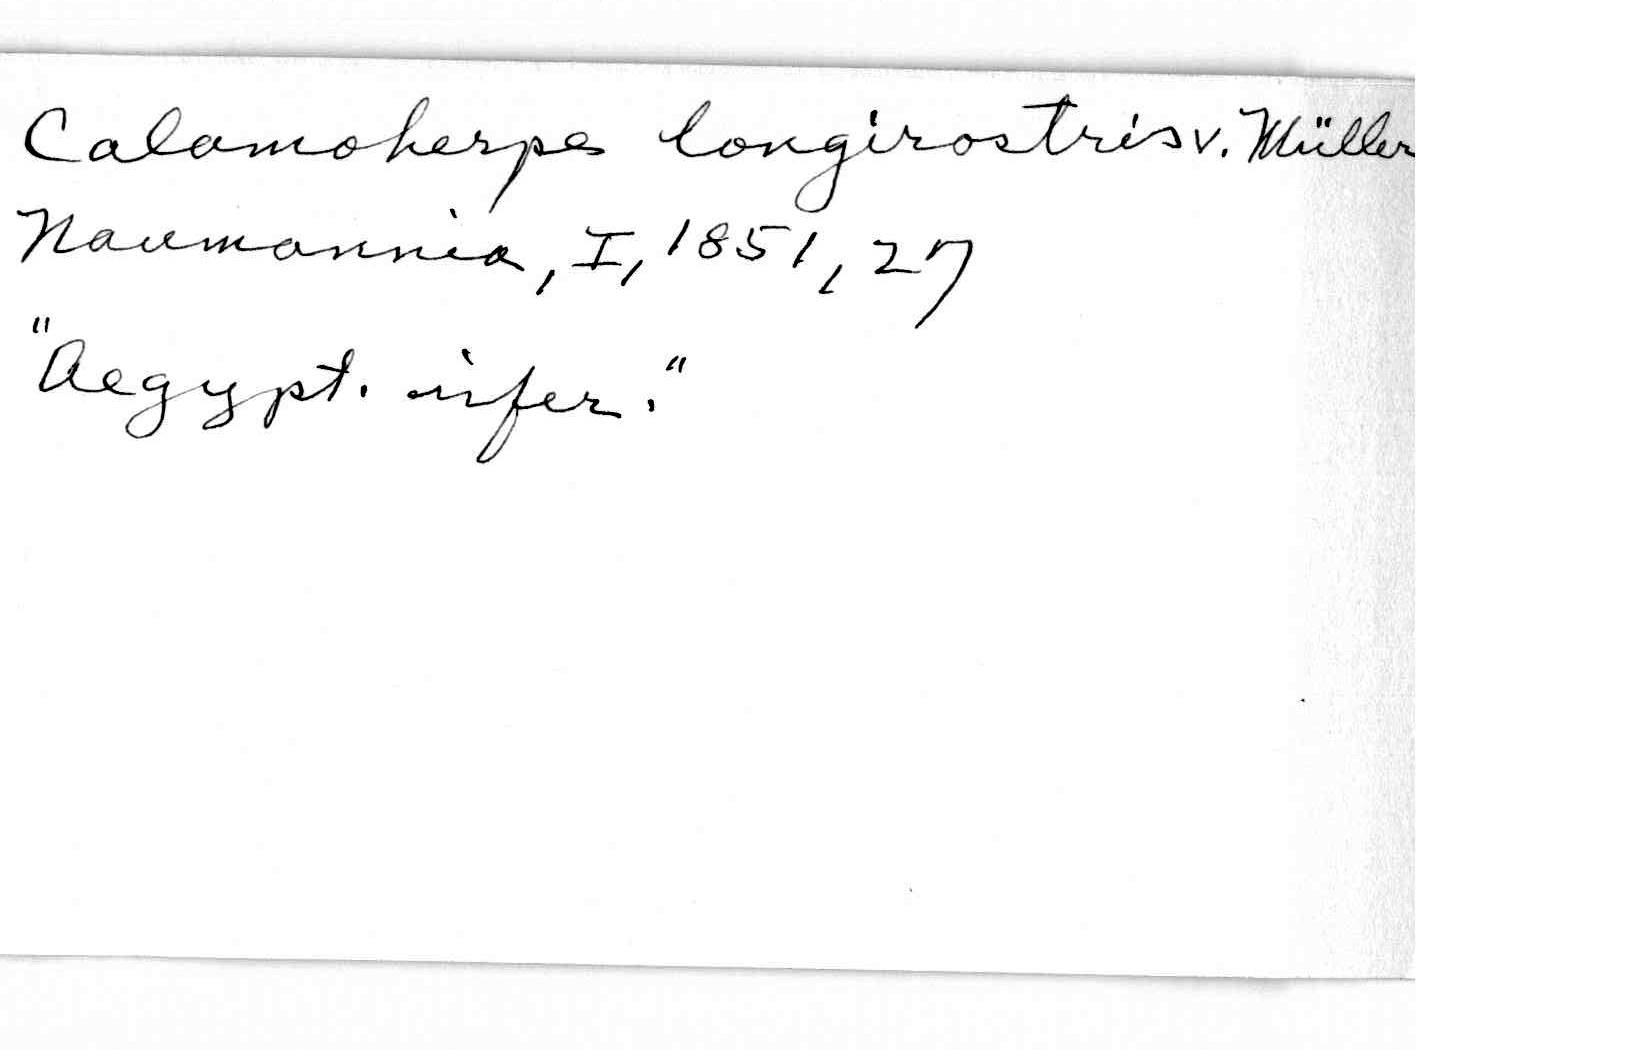 Calamoherpe longirostris v. Müller
Naumannia, I, 1851, 27
"Aegypt. infer."